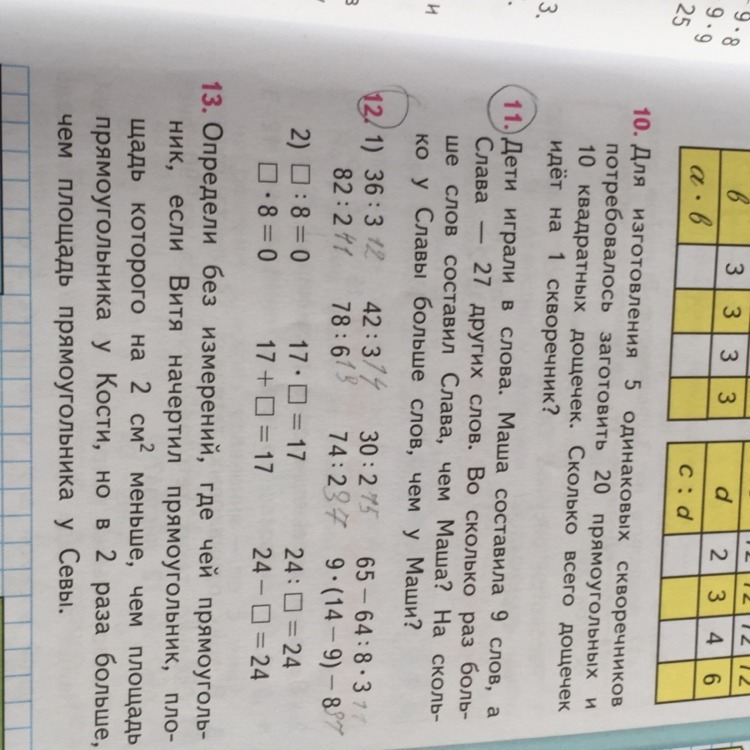 9 · 8
9 · 9
25
3.
и
в 3 3 3 3
а · в
72 72 72 72
d 2 3 4 6
c : d
10. Для изготовления 5 одинаковых скворечников
потребовалось заготовить 20 прямоугольных и
10 квадратных дощечек. Сколько всего дощечек
идёт на 1 скворечник?
11. Дети играли в слова. Маша составила 9 слов, а
Слава — 27 других слов. Во сколько раз боль-
ше слов составил Слава, чем Маша? На сколь-
ко у Славы больше слов, чем у Маши?
12. 1) 36 : 3 12 42 : 3 14 30 : 2 15 65 – 64 : 8 · 3
82 : 2 41 78 : 6 13 74 : 2 37 9 · (14 – 9) – 8 37
2) □ : 8 = 0 17 · □ = 17 24 : □ = 24
□ · 8 = 0 17 + □ = 17 24 – □ = 24
13. Определи без измерений, где чей прямоуголь-
ник, если Витя начертил прямоугольник, пло-
щадь которого на 2 см² меньше, чем площадь
прямоугольника у Кости, но в 2 раза больше,
чем площадь прямоугольника у Севы.